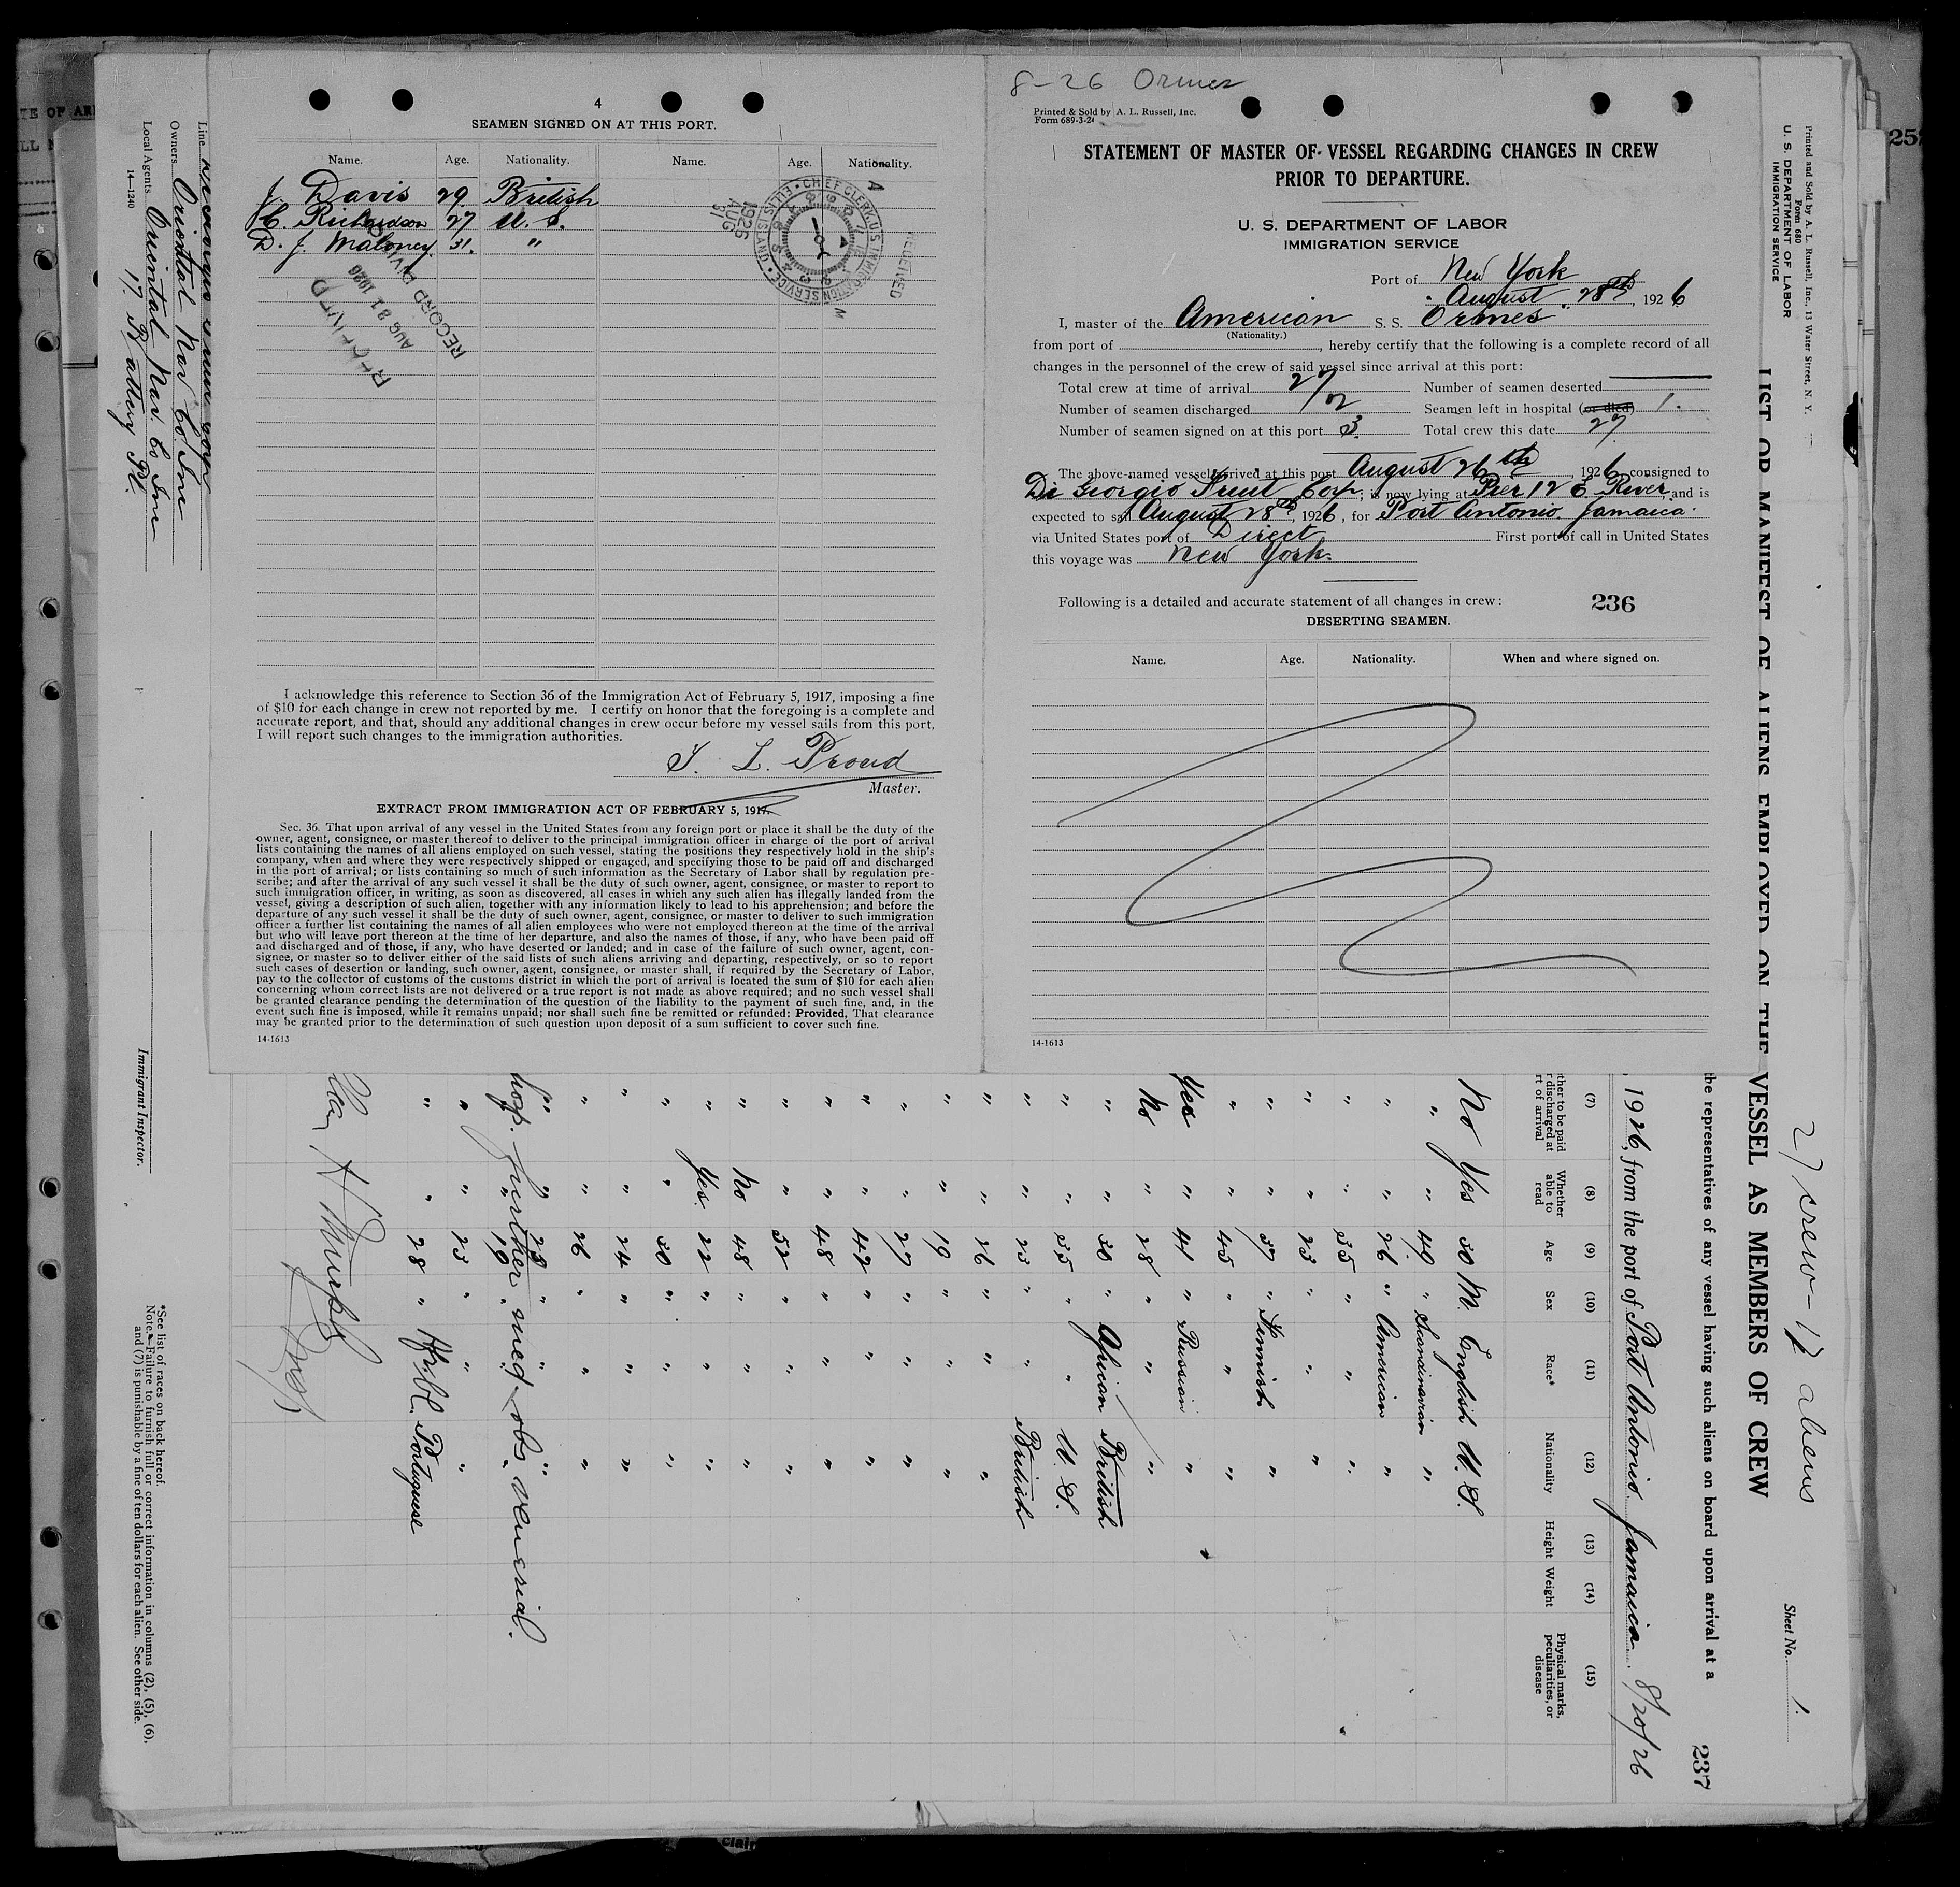 4
SEAMEN SIGNED ON AT THIS PORT.
Name. Age. Nationality. Name. Age. Nationality.
J. Davis 29. British
C. Richardson 27 U. S.
D. J. Maloney. 31. "
RECEIVED
AUG 31 1926
RECORD DIVISION
CHIEF CLERK, U.S. IMMIGRATION SERVICE • ELLIS ISLAND
1926
AUG
31
A
M
I acknowledge this reference to Section 36 of the Immigration Act of February 5, 1917, imposing a fine
of $10 for each change in crew not reported by me. I certify on honor that the foregoing is a complete and
accurate report, and that, should any additional changes in crew occur before my vessel sails from this port,
I will report such changes to the immigration authorities.
L. Proud
Master.
EXTRACT FROM IMMIGRATION ACT OF FEBRUARY 5, 1917.
Sec. 36. That upon arrival of any vessel in the United States from any foreign port or place it shall be the duty of the
owner, agent, consignee, or master thereof to deliver to the principal immigration officer in charge of the port of arrival
lists containing the names of all aliens employed on such vessel, stating the positions they respectively hold in the ship's
company, when and where they were respectively shipped or engaged, and specifying those to be paid off and discharged
in the port of arrival; or lists containing so much of such information as the Secretary of Labor shall by regulation pre-
scribe; and after the arrival of any such vessel it shall be the duty of such owner, agent, consignee, or master to report to
such immigration officer, in writing, as soon as discovered, all cases in which any such alien has illegally landed from the
vessel, giving a description of such alien, together with any information likely to lead to his apprehension; and before the
departure of any such vessel it shall be the duty of such owner, agent, consignee, or master to deliver to such immigration
officer a further list containing the names of all alien employees who were not employed thereon at the time of the arrival
but who will leave port thereon at the time of her departure, and also the names of those, if any, who have been paid off
and discharged and of those, if any, who have deserted or landed; and in case of the failure of such owner, agent, con-
signee, or master so to deliver either of the said lists of such aliens arriving and departing, respectively, or so to report
such cases of desertion or landing, such owner, agent, consignee, or master shall, if required by the Secretary of Labor,
pay to the collector of customs of the customs district in which the port of arrival is located the sum of $10 for each alien
concerning whom correct lists are not delivered or a true report is not made as above required; and no such vessel shall
be granted clearance pending the determination of the question of the liability to the payment of such fine, and, in the
event such fine is imposed, while it remains unpaid; nor shall such fine be remitted or refunded: Provided, That clearance
may be granted prior to the determination of such question upon deposit of a sum sufficient to cover such fine.
14-1613
8-26 Ormes
Printed & Sold by A. L. Russell, Inc.
Form 689-3-24
STATEMENT OF MASTER OF VESSEL REGARDING CHANGES IN CREW
PRIOR TO DEPARTURE.
U. S. DEPARTMENT OF LABOR
IMMIGRATION SERVICE
Port of New York
August 28th, 1926
I, master of the American S. S. Ormes
(Nationality.)
from port of , hereby certify that the following is a complete record of all
changes in the personnel of the crew of said vessel since arrival at this port:
Total crew at time of arrival 27 Number of seamen deserted
Number of seamen discharged 2 Seamen left in hospital (or died) 1.
Number of seamen signed on at this port 3. Total crew this date 27
The above-named vessel arrived at this port August 26th 1926, consigned to
Di Giorgio Fruit Corp; is now lying at Pier 12 E. River, and is
expected to sail August 28th, 1926, for Port Antonio. Jamaica.
via United States port of Direct First port of call in United States
this voyage was New York.
Following is a detailed and accurate statement of all changes in crew: 236
DESERTING SEAMEN.
Name. Age. Nationality. When and where signed on.
14-1613
Printed and Sold by A. L. Russell, Inc., 13 Water Street, N. Y.
Form 680
U. S. DEPARTMENT OF LABOR
IMMIGRATION SERVICE
27 crew - 17 aliens
Sheet No. 1.
LIST OR MANIFEST OF ALIENS EMPLOYED ON THE VESSEL AS MEMBERS OF CREW
the representatives of any vessel having such aliens on board upon arrival at a
237
, 1926, from the port of Port Antonio. Jamaica. 8/20/26
(7) (8) (9) (10) (11) (12) (13) (14) (15)
Whether able to read Age Sex Race* Nationality Height Weight Physical marks, peculiarities, or disease
No Yes 30 M. English U. S.
" " 49 " Scandinavian "
" " 26 " American "
" " 35 " " "
" " 23 " " "
" " 37 " Finnish "
" " 45 " " "
Yes " 41 " Russian "
No " 28 " " "
" " 30 " African British
" " 35 " " U. S.
" " 23 " " British
" " 26 " " "
" " 19 " " "
" " 27 " " "
" " 42 " " "
" " 48 " " "
" " 52 " " "
" No 48 " " "
" Yes. 22 " " "
" " 30 " " "
" " 24 " " "
" " 26 " " "
" " 23 " " "
" 19 " " "
hosp. further med. obs. venereal.
" " 23 " " "
" " 28 " Af. bl. Portuguese
Immigrant Inspector.
*See list of races on back hereof.
Note.—Failure to furnish full or correct information in columns (2), (5), (6),
and (7) is punishable by a fine of ten dollars for each alien. See other side.
Line
Owners Oriental Nav Co. Inc
Local Agents Oriental Nav. Co Inc
17 Battery Pl.
14—1240
252